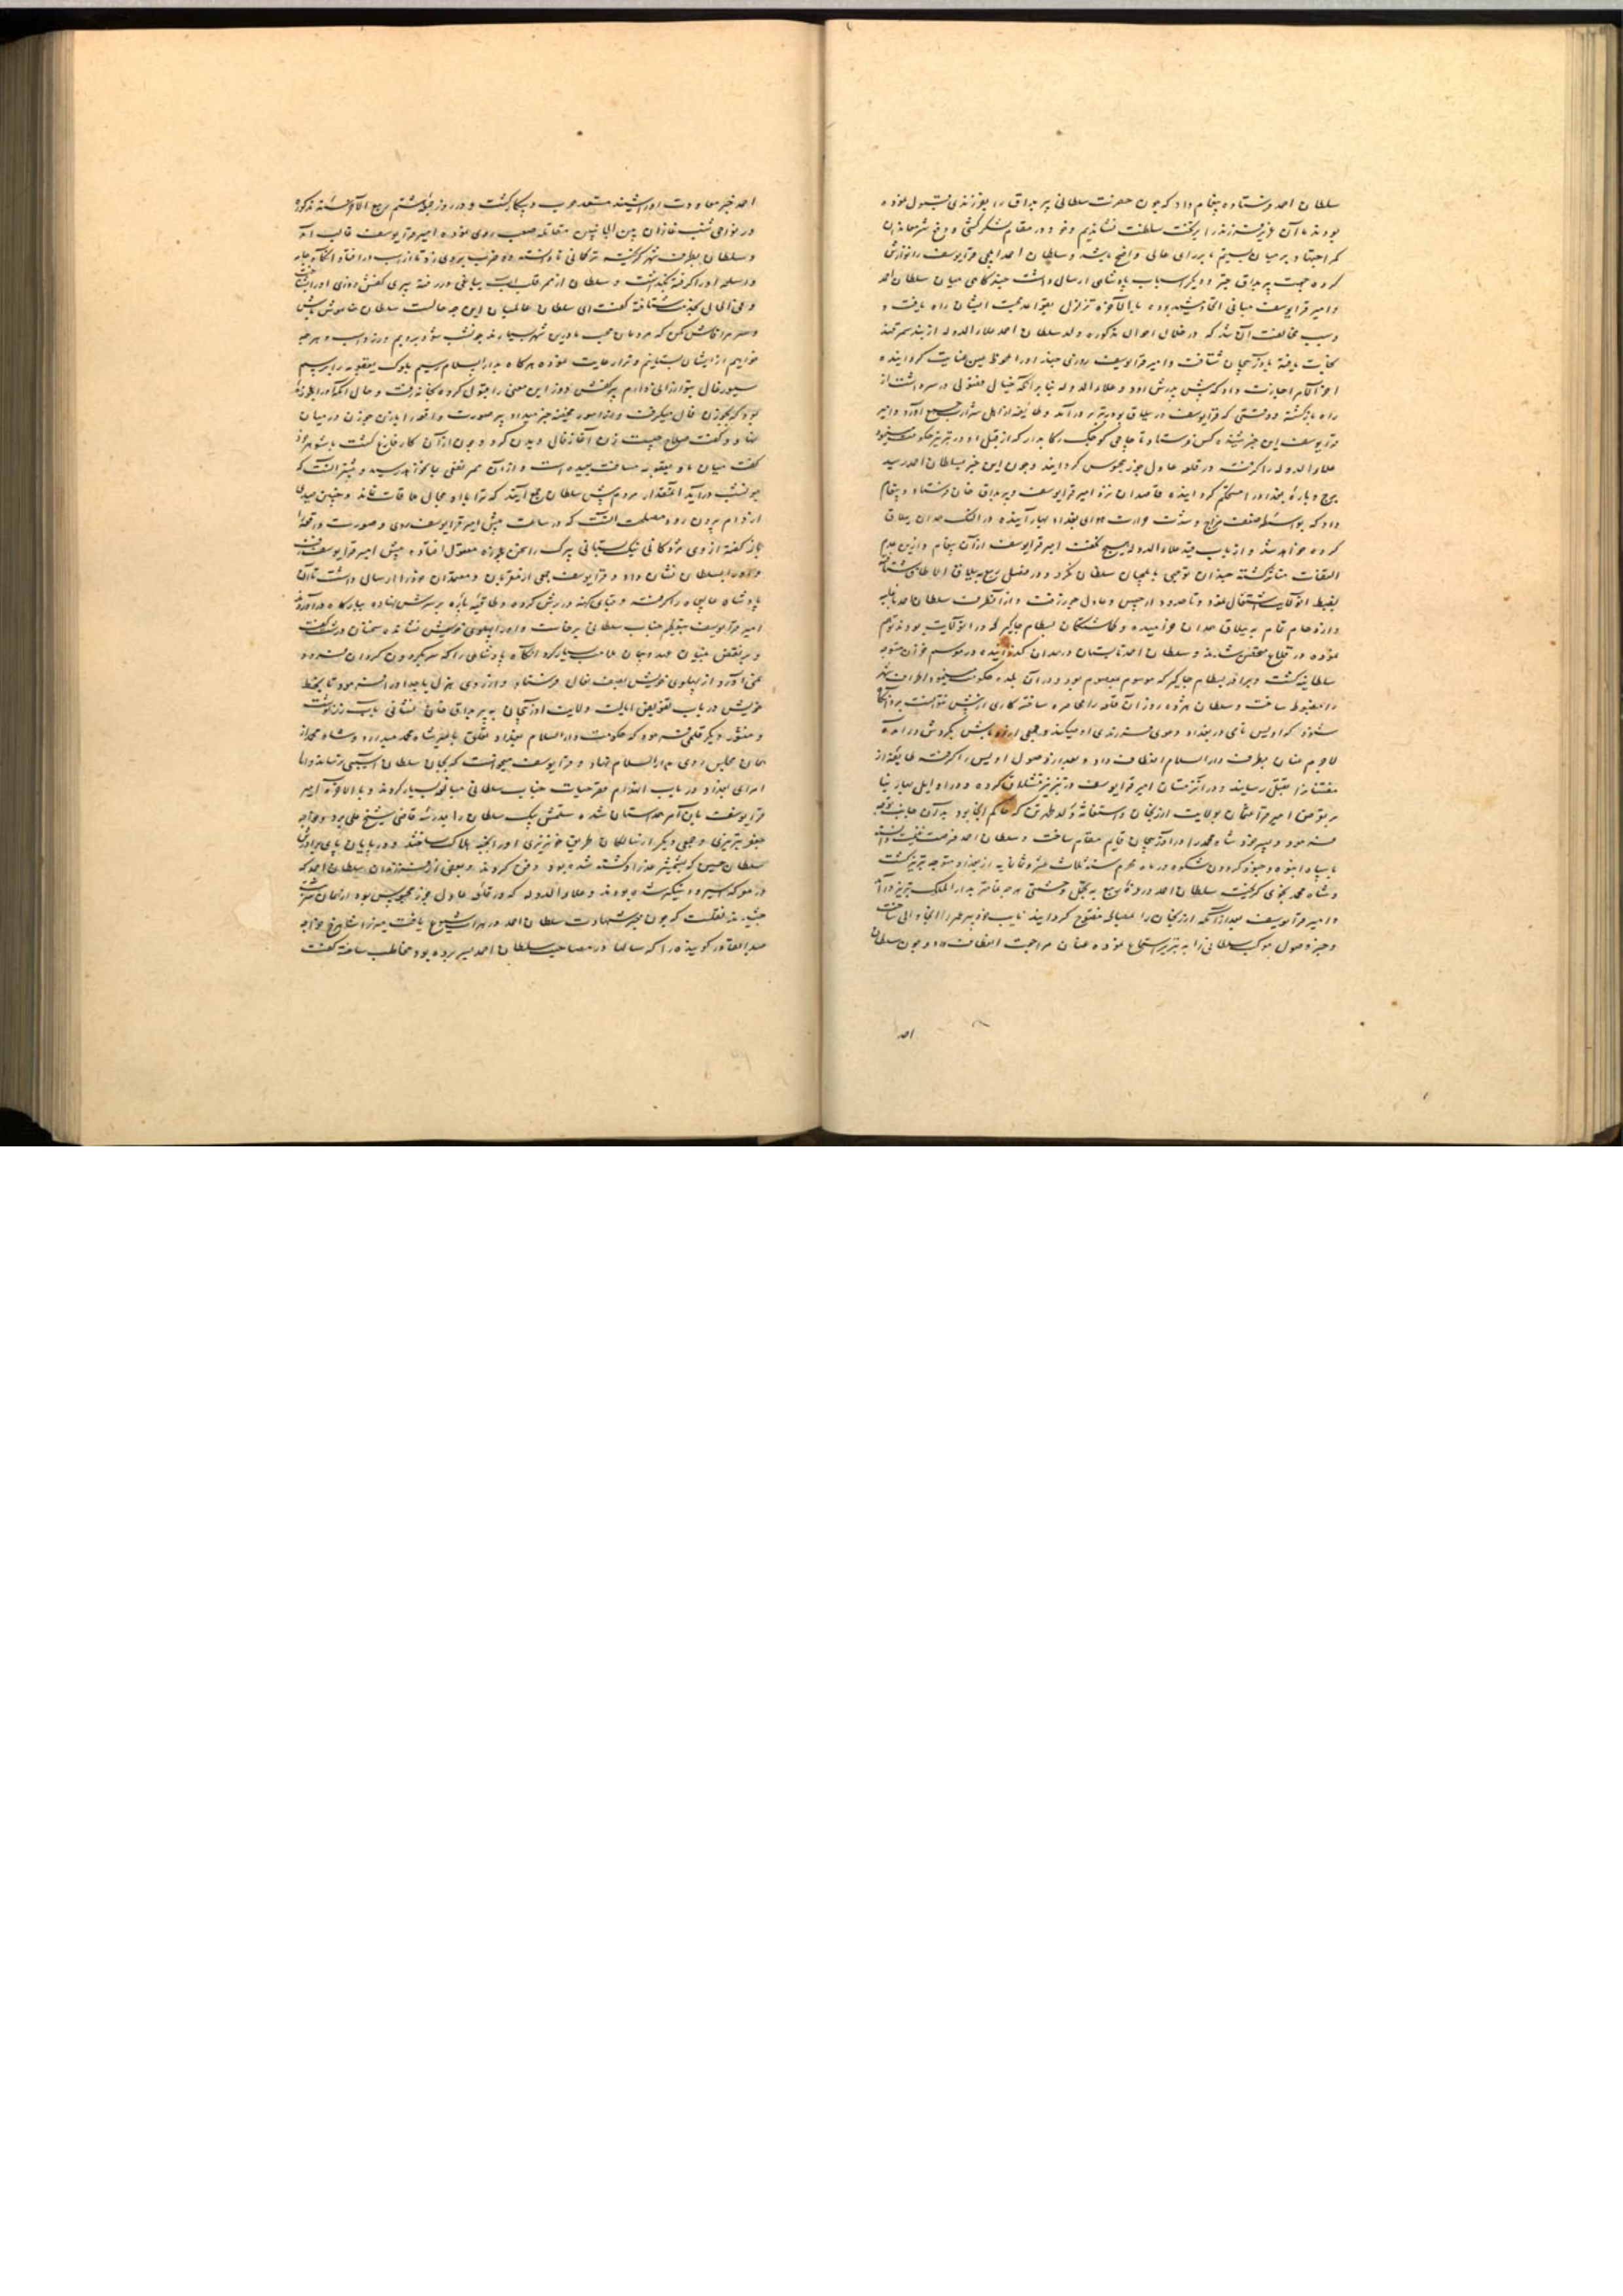 سلطان احمد فرستاده پیغام داد که چون حضرت سلطانی پیر بداق را بفرزندی قبول نموده
بودند ما آن فرزند را بر تخت سلطنت نشاندیم و خود در مقام لشکرکشی و
کمر اجتهاد بر میان بستیم برای عالی واضح باشد و سلطان احمد ایلچی قرا یوسف را نوازش
کرده جهت پیر بداق چتر و دیگر اسباب پادشاهی ارسال داشت چند کاهی میان سلطان احمد
و امیر قرا یوسف مبانی اتحاد مشید بوده بالاخره تزلزل بقواعد محبت ایشان راه یافت و
سبب مخالفت آن شد که در خلال احوال مذکوره ولد سلطان احمد علاء الدوله از بند سمرقند
نجات یافته بآذربیجان شتافت و امیر قرا یوسف روزی چند او را محوظ عین عنایت کردانیده
اجازت داد که پیش پدرش رود و علاء الدوله بنا بر آنکه خیال فضولی در سر داشت از
راه بازکشته وقتی که قرا یوسف در ییلاق بود بتبریز درآمد و طایفه از اهل شرارت جمع آورد و امیر
قرا یوسف این خبر شنیده کس فرستاد تا
علاء الدوله را کرفته در قلعه عادل جوز محبوس کردانید و چون این خبر بسلطان احمد رسید
برج و باره بغداد را مستحکم کردانیده قاصدان نزد امیر قرا یوسف و پیر بداق خان فرستاد و پیغام
داد که بواسطه ضعف مزاج و شدت حرارت هوای بغداد بهار آینده در همدان ییلاق
کرده خواهد شد و از باب قید علاء الدوله هیچ نکفت امیر قرا یوسف از آن پیغام و از این عدم
التفات متأثر کشته چندان توجهی بایلچیان سلطان نکرد و در فصل ربیع به ییلاق الاطاق شتافته
بضبط آن ولایت اشتغال نمود و تا حدود ارجیس و عادل جوز رفت و از آن طرف سلطان احمد با غلبه
وازدحام تمام به ییلاق همدان خرامیده و کماشتکان بسطام جاکیر که در آن ولایت بودند توهم
نموده در قلاع متحصن شدند و سلطان احمد تابستان در همدان کذرانیده در موسم خزان متوجه
سلطانیه کشت و برادر بسطام جاکیر که موسوم بمعصوم بود و در آن بلده حکومت مینمود اطراف شهر
را مضبوط ساخت و سلطان هژده روز آن قلعه را محاصره ساخته کاری از پیش نتوانست برد آنکاه
شنود که اویس نامی در بغداد دعوی فرزندی او میکند و جمعی بکردش درآمده
لاجرم عنان بطرف دار السلام انعطاف داد و بعد از وصول اویس را کرفته طایفه از
مفتنان را بقتل رسانید و در آن زمستان امیر قرا یوسف در تبریز قشلاق کرده و در اوایل بهار بنا
بر تعرض امیر قرا عثمان بولایت ارزنجان و استغاثه ولد طهرتن که حاکم آنجا بود به آن جانب توجه
فرمود و پسر خود شاه محمد را در آذربیجان قایم مقام ساخت و سلطان احمد فرصت غنیمت دانسته
با سپاه انبوه و جنود کردون شکوه در ماه محرم سنه ثلاث عشر و ثمانمایه از بغداد متوجه تبریز کشت
و شاه محمد بخوی کریخت سلطان احمد در غره ربیع به تجمل و حشمتی هر چه تمامتر بدار الملک تبریز درآمد
و امیر قرا یوسف بعد از آنکه ارزنجان را بمصالحه مفتوح کردانید نایب خود پیر عمر را آنجا والی ساخت
و خبر وصول موکب سلطانی را به تبریز استماع نموده عنان مراجعت انعطاف داد و چون سلطان
احمد
احمد خبر معاودت او را شنید مستعد حرب و پیکار کشت و در روز جمعه هشتم ربیع الآخر سنه مذکوره
در نواحی شنب غازان بین الجانبین مقاتله صعب روی نموده امیر قرا یوسف غالب آمد
و سلطان بطرف شهر کریخته ترکمانی نادانسته ده ضرب بر وی زد تا از اسب درافتاد آنکاه جامه
و سلاح او را کرفته بکذاشت و سلطان از ممر آب بباغی در رفته پیری کفش دوزی او را شناخت
و فی الحال بخدمت شتافته کفت ای سلطان عالمیان این چه حالت است سلطان کفت خاموش باش
و سر مرا فاش مکن که مردمان محب ما در این شهر بسیارند چون شب شود برویم و زر و اسب و هر چه
خواهیم از ایشان بستانیم و ترا رعایت نموده هرکاه بدار السلام رسیم بلوک یعقوبه را برسم
سیورغال بتو ارزانی دارم پیر کفش دوز این معنی را قبول کرده بخانه رفت و حال آنکه او را زنی
بود که بجوز فال میکرفت و از امور مخفیه خبر میداد پیر صورت واقعه را با زن خود در میان
نهاد و کفت صلاح چیست زن آغاز فال دیدن کرد و چون از آن کار فارغ کشت با شوهر خود
کفت میان ما و یعقوبه مسافت بعیده است و از آن ممر نفعی بما نخواهد رسید و بیشتر آنست که
چون شب درآید آن مقدار مردم پیش سلطان جمع آیند که ترا با او مجال ملاقات نماند و چنین صیدی
از دام بیرون رود مصلحت آنست که در ساعت پیش امیر قرا یوسف روی و صورت واقعه را
باز کفته از وی مژدکانی نیک بستانی پیرک را سخن عجوزه معقول افتاده پیش امیر قرا یوسف رفت
و او را بسلطان نشان داد و قرا یوسف جمعی از مقربان و معتمدان خود را ارسال داشت تا آن
پادشاه عالیجاه را کرفتند و قبای کهنه در برش کرده و طاقیه پاره بر سرش نهاده ببارکاه درآوردند
امیر قرا یوسف بتعظیم جناب سلطانی برخاست و او را پهلوی خویش نشانده سخنان درشت کفت
و بر نقض میثاق عهد و پیمان ملامت بسیار کرد آنکاه پادشاهی را که سر بکردون کردان فرو
نمی آورد از پهلوی خویش بصف نعال فرستاد و از روی هزل یا جد او را فرمود تا بخط
خویش در باب تفویض ایالت ولایت آذربیجان به پیر بداق خان نشانی باید نوشت
و منشور دیکر قلمی فرمود که حکومت دار السلام بغداد تعلق بامیر شاه محمد میدارد و شاه محمد از
همان مجلس روی بدار السلام نهاد و قرا یوسف میخواست که بجان سلطان آسیبی نرساند اما
امرای بغداد در باب انهدام قصر حیات جناب سلطانی مبالغه بسیار کردند و بالاخره امیر
قرا یوسف با این امر همداستان شده سلتمش بیک سلطان را بمدرسه قاضی شیخ علی برد و خواجه
جعفر تبریزی و جمعی دیکر از سالکان طریق خونریزی او را بخبه هلاک ساختند و در پایان پای برادرش
سلطان حسین که بشمشیر غدر او کشته شده بود دفن کردند و بعضی از فرزندان سلطان احمد که
در معرکه اسیر و دستکیر شده بودند و علاء الدوله که در قلعه عادل جوز محبوس بود از همان شربت
چشیدند نقلست که چون خبر شهادت سلطان احمد در هرات شیوع یافت میرزا شاهرخ خواجه
عبد القادر کوینده را که سالها در مصاحبت سلطان احمد بسر برده بود مخاطب ساخته کفت